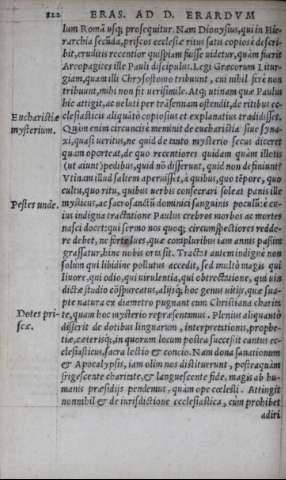 822 ERAS. AD D. ERARDVM
lum Romã usq; prosequitur. Nam Dionysius, qui in Hie-
rarchia secũda, prisco ecclesiæ ritus satis copiose descri-
bit, eruditis recentior quispiam fuisse uidetur, quàm fuerit
Areopagites ille Pauli discipulus. Legi Græcorum Litur-
giam, quam illi Chrysostomo tribuunt, cui nihil ferè non
tribuunt, mihi non fit uerisimile. Atq; utinam quæ Paulus
hic attigit, ac ueluti per trãsennam ostendit, de ritibus ec-
Eucharistiæ clesiasticis aliquãto copiosius et explanatius tradidisset.
mysterium. Quin enim circuncisè meminit de eucharistia siue syna-
xi, quasi ueritus, ne quid de tanto mysterio secus diceret
quàm oporteat, de quo recentiores quidam quàm illotis
(ut aiunt) pedibus, quid nõ disserunt, quid non definiunt?
Vtinam illud saltem aperuisset, à quibus, quo tẽpore, quo
cultu, quo ritu, quibus uerbis consecrari soleat panis ille
Pestes unde. mysticus, ac sacrosanctũ dominici sanguinis poculũ: è cu-
ius indigna tractatione Paulus crebros morbos ac mortes
nasci docet: qui sermo nos quoq; circumspectiores redde-
re debet, ne forte lues, quæ compluribus iam annis passim
grassatur, hinc nobis orta sit. Tractat autem indignè non
solùm qui libidine pollutus accedit, sed multò magis qui
liuore, qui odio, qui uirulentia, qui obtrectatione, qui uin
dictæ studio cõspurcatus, aliisq; hoc genus uitijs, quæ sua-
pte natura ex diametro pugnant cum Christiana charita
Dotes pri- te, quam hoc mysterio repræsentamus. Plenius aliquantò
scæ. disserit de dotibus linguarum, interpretationis, prophe-
tiæ, cæterisq; in quorum locum postea successit cantus ec-
clesiasticus, sacra lectio et concio. Nam dona sanationum
& Apocalypsis, iam olim nos destituerunt, posteaquàm
frigescente charitate, & languescente fide, magis ab hu-
manis præsidijs pendemus, quàm ope cœlesti. Attingit
nonnihil & de iurisdictione ecclesiastica, cùm prohibet
adiri